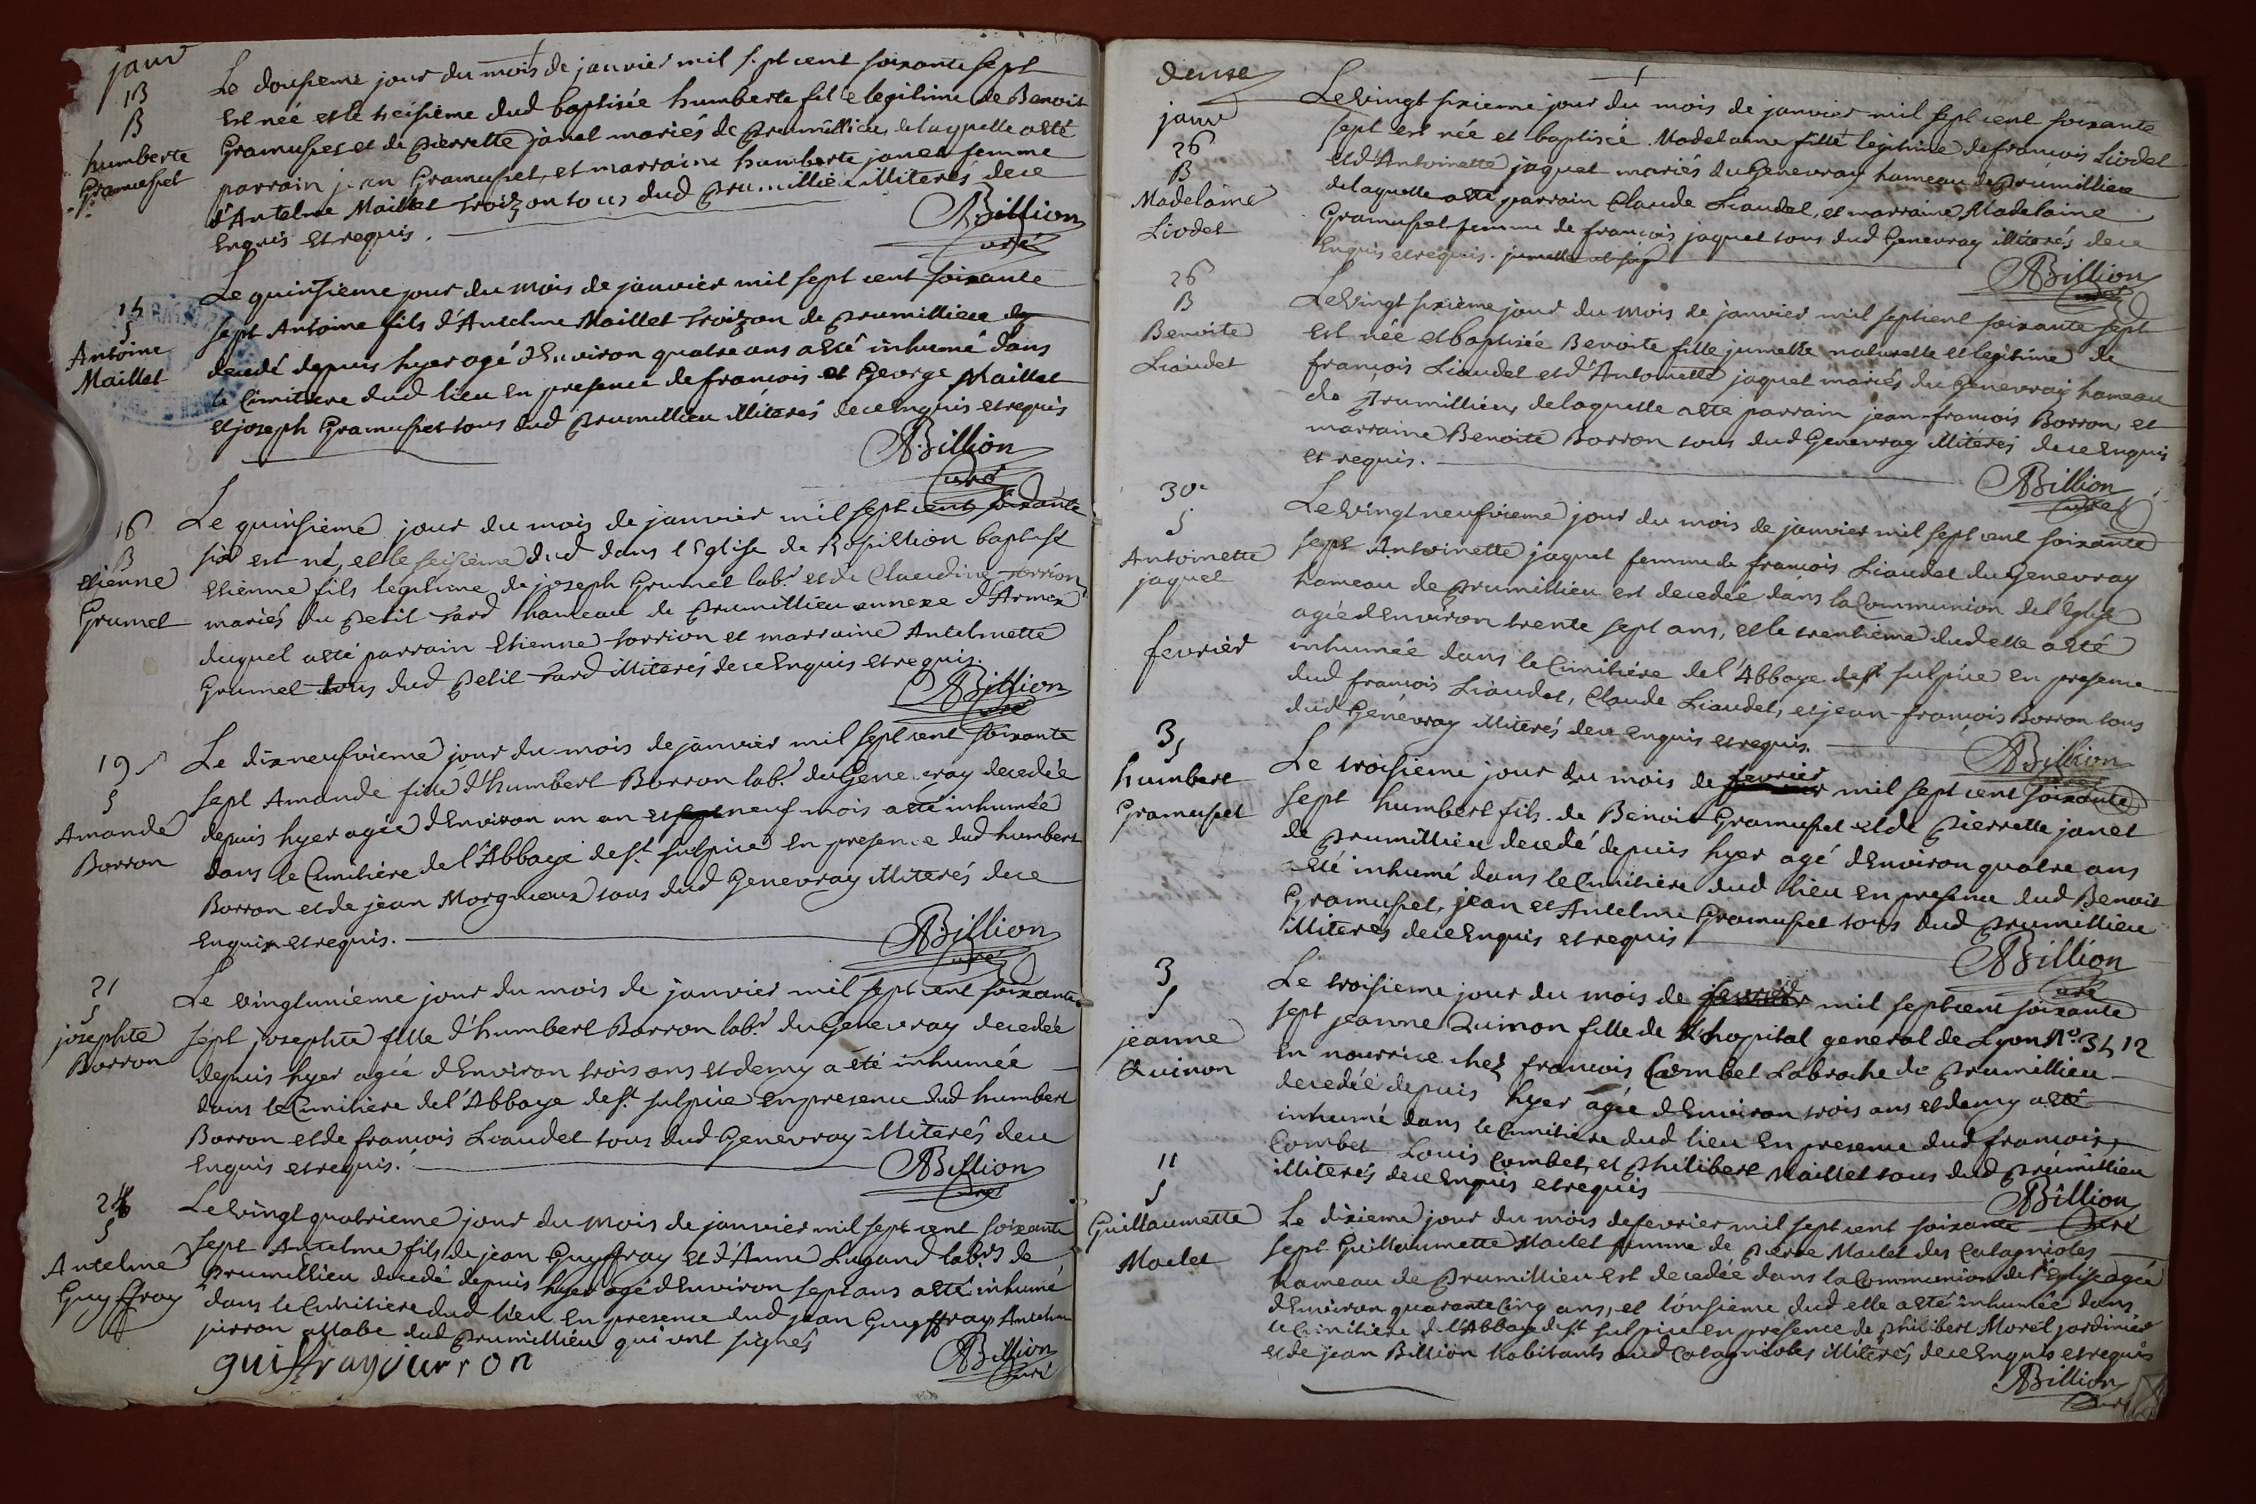 janv
13
B
humberte
Gramusset
Le dousieme jour du mois de janvier mil sept cent soixante sept
est née et le treisième dud baptisée humberte fille legitime de Benoit
Gramusset et de pierrette janet mariés de prumillieu de laquelle a esté
parrain jean Gramusset, et marraine humberte janet femme
d'Antelme Maillet troizon tous dud prumillieu illiterés de ce
enquis et requis.
ABillion
curé
15
S
Antoine
Maillet
Le quinsieme jour du mois de janvier mil sept cent soixante
sept Antoine fils d'Antelme Maillet troizon de prumillieu
decedé depuis hyer agé d'Environ quatre ans a esté inhumé dans
le Cimitiere dud lieu en presence de francois et George Maillet
et joseph Gramusset tous dud prumillieu illiterés de ce enquis et requis
ABillion
curé
16
B
etienne
Grumet
Le quinsieme jour du mois de janvier mil sept cent soixante
sept est né, et le seisieme dud dans l'Eglise de Rossillion baptisé
etienne fils legitime de joseph Grumet labr et de Claudine torrion
mariés du petit tard hameau de prumillieu annexe d'Armix
duquel a esté parrain etienne torrion et marraine Antelmette
Grumet tous dud petit tard illiterés de ce enquis et requis.
ABillion
curé
19
S
Amande
Borron
Le dixneufvieme jour du mois de janvier mil sept cent soixante
sept Amande fille d'humbert Borron labr du Genevray decedée
depuis hyer agée d'Environ un an et neuf mois a esté inhumée
dans le Cimitière de l'Abbaye de St sulpice en presence dud humbert
Borron et de jean Morgneux tous dud Genevray illiterés de ce
enquis et requis.
ABillion
curé
21
S
josephte
Borron
Le vingtunième jour du mois de janvier mil sept cent soixante
sept josephte fille d'humbert Borron labr du Genevray decedée
depuis hyer agée d'Environ trois ans et demy a été inhumée
dans le Cimitiere de l'Abbaye de St sulpice en presence dud humbert
Borron et de francois Liaudet tous dud Genevray illiterés de ce
enquis et requis.
ABillion
curé
24
S
Antelme
Guyffray
Le vingt quatrieme jour du mois de janvier mil sept cent soixante
sept Antelme fils de jean Guyffray et d'Anne Lugand labrs de
prumillieu decedé depuis hyer agé d'Environ sept ans a esté inhumé
dans le Cimitiere dud lieu en presence dud jean Guyffray, Antelme
jurron allabe dud prumillieu qui ont signés
guiffray jurron
ABillion
curé
deuse
janv
26
B
Madelaine
Liodet
Le vingt sixieme jour du mois de janvier mil sept cent soixante
sept est née et baptiseé Madelaine fille legitime de francois Liodet
et d'Antoinette jaquet mariés du Genevray hameau de prumillieu
de laquelle a esté parrain Claude Liaudet, et marraine Madelaine
Gramusset femme de francois jaquet tous dud Genevray illiterés de ce
enquis et requis.
ABillion
curé
26
B
Benoite
Liaudet
Le vingt sixième jour du mois de janvier mil sept cent soixante sept
est née et baptisée Benoite fille jumelle naturelle et legitime de
françois Liaudet et d'Antoinette jaquet mariés du Genevray hameau
de prumillieu, de laquelle a esté parrain jean-francois Borron, et
marraine Benoite Borron tous dud Genevray illiterés de ce enquis
et requis.
ABillion
curé
30
S
Antoinette
jaquet
Le vingt neufvieme jour du mois de janvier mil sept cent soixante
sept Antoinette jaquet femme de francois Liaudet du Genevray
hameau de prumillieu est decedée dans la Communion de l'Eglise
agée d'Environ trente sept ans, et le trentieme dud elle a esté
inhumée dans le Cimitière de l'Abbaye de St sulpice en presence
dud francois Liaudet, Claude Liaudet, et jean-françois Borron tous
dud Genévray illiterés de ce enquis et requis.
ABillion
curé
fevrier
3
S
humbert
Gramusset
Le troisieme jour du mois de fevrier mil sept cent soixante
sept humbert fils de Benoit Gramusset et de pierrette janet
de prumillieu decedé depuis hyer agé d'Environ quatre ans
a esté inhumé dans le Cimitière dud lieu en presence dud Benoit
Gramusset, jean et Antelme Gramusset tous dud prumillieu
illiterés de ce enquis et requis
ABillion
curé
3
S
jeanne
Quinon
Le troisieme jour du mois de fevrier mil sept cent soixante
sept jeanne Quinon fille de l'hopital general de Lyon No 3412
en nourrice chez francois Combet Labroche de prumillieu
decedée depuis hyer agée d'Environ trois ans et demy a esté
inhumé dans le Cimitiere dud lieu en presence dud francois
Combet Louis Combet, et philibert Maillet tous dud prumillieu
illiterés de ce enquis et requis
ABillion
curé
11
S
Guillaumette
Maclet
Le dixieme jour du mois de fevrier mil sept cent soixante
sept Guillaumette Maclet femme de pierre Maclet des Catagnioles
hameau de prumillieu est decedée dans la Communion de l'Eglise agée
d'Environ quarante cinq ans, et l'onsieme dud elle a esté inhumée dans
le Cimitiere de l'Abbaye de St sulpice en présence de philibert Morel jardinier
et de jean Billion habitants aud Catagnioles illiterés de ce enquis et requis
ABillion
curé